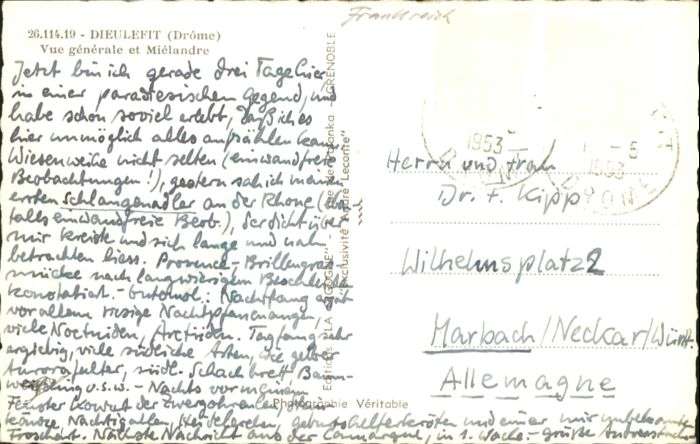 Frankreich
26.114.19 - DIEULEFIT (Drôme)
Vue générale et Miélandre
Jetzt bin ich gerade drei Tage hier
in einer paradiesischen Gegend, und
habe schon soviel erlebt, daß ich es
hier unmöglich alles aufzählen kann.
Wiesenweihe nicht selten (einwandfreie
Beobachtungen!), gestern sah ich meinen
ersten Schlangenadler an der Rhone (eben-
falls einwandfreie Beob.), der dicht über
mir kreiste und sich lange und nah
betrachten liess. Provence-, Brillengras-
mücke nach langwierigem Beschleichen
konstatiert. - Entomol.: Nachtfang ergab
vor allem riesige Nachtpfauenaugen,
viele Noctuiden, Arctiiden. Tagfang sehr
ergiebig, viele südliche Arten, wie gelber
Aurorafalter, südl. Schachbrett, Baum-
weißling u.s.w. - Nachts vor meinem
Fenster Konzert der Zwergohreulen,
käuze, Nachtigallen, Heidelerchen, Geburtshelferkröten und einer mir unbekannten
Froschart. Nächste Nachricht aus der Camargue, in 1 Woche. Größe
Editions "LA CIGOGNE"
GRENOBLE
"Exclusivité André Lecomte"
Photographie Véritable
1953
1 - 5
1953
Herrn und Frau
Dr. F. Kipp
Wilhelmsplatz 2
Marbach/Neckar/Württ.
Allemagne